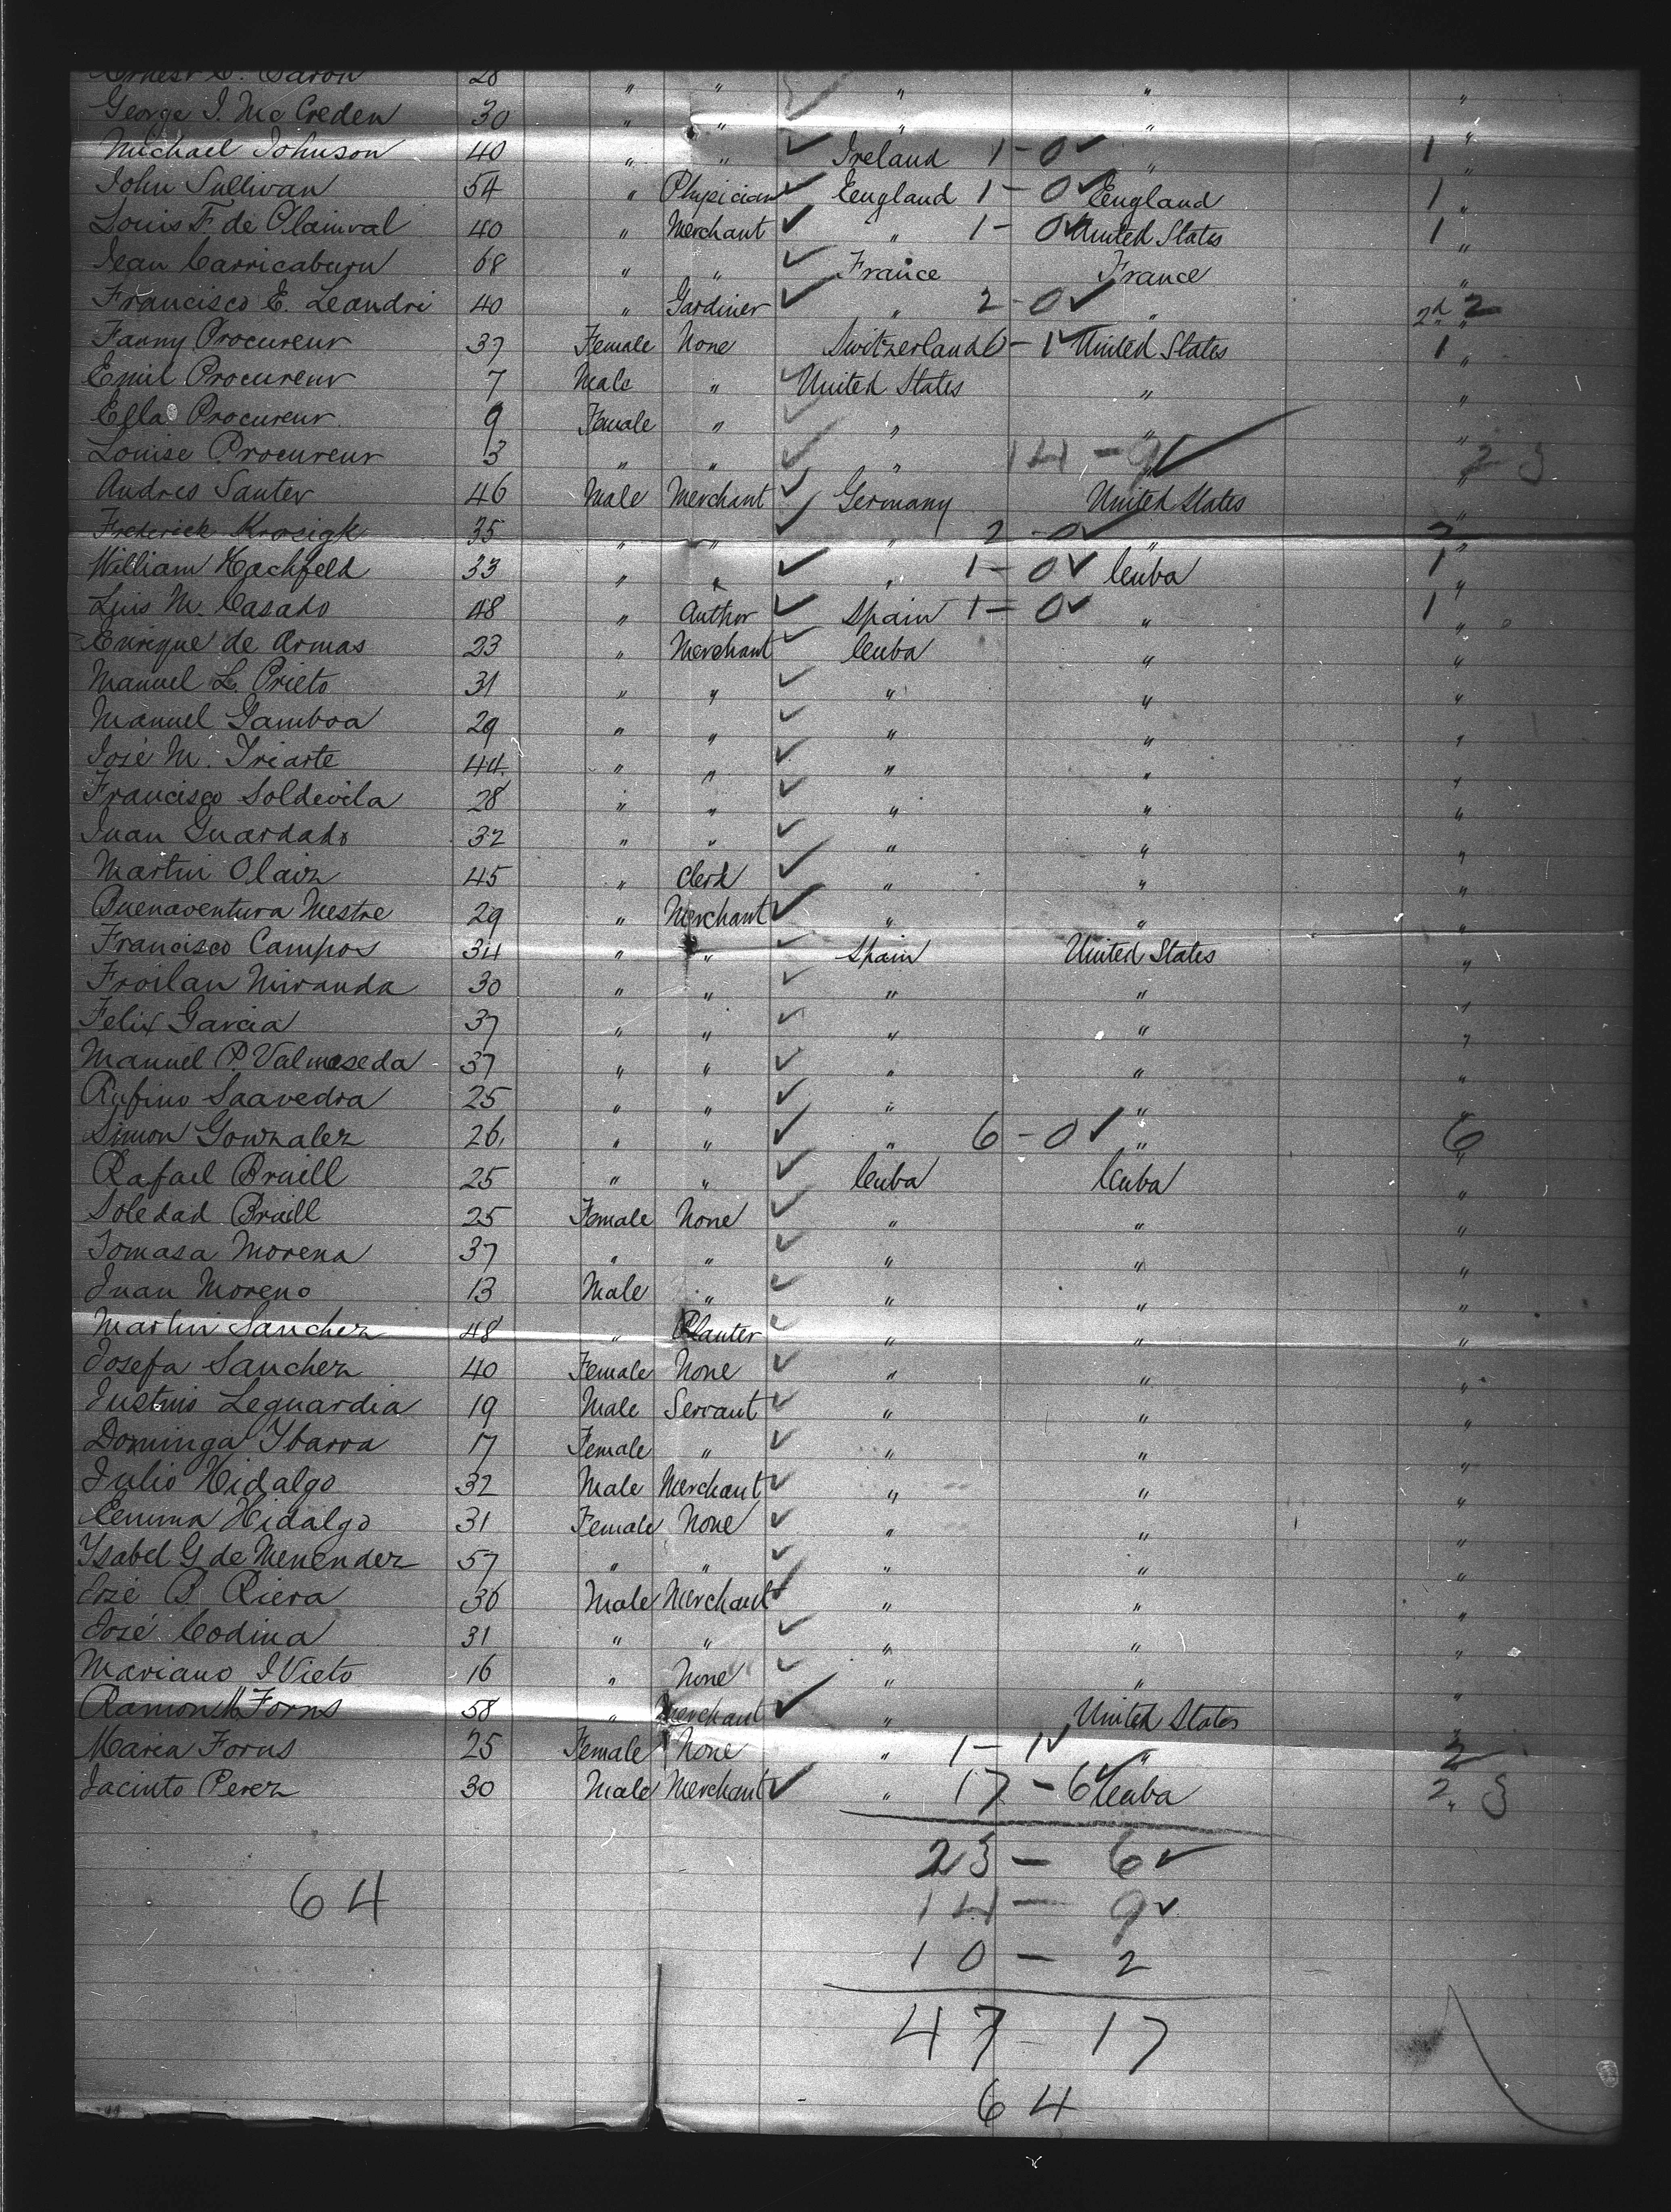 Ernest C. Baron 28 " " " " "
George I. Mc Creden 30 " " " " "
Michael Johnson 40 " " Ireland 1 - 0 " 1 "
John Sullivan 54 " Physician England 1 - 0 England 1 "
Louis F. de Clainval 40 " Merchant " 1 - 0 United States 1 "
Jean Carricaburu 68 " " France France "
Francisco E. Leandri 40 " Gardiner " 2 - 0 " 2d 2 "
Fanny Procureur 37 Female None Switzerland 0 - 1 United States 1 "
Emil Procureur 7 Male " United States " "
Ella Procureur 9 Female " " " "
Louise Procureur 3 " " " 14 - 9 " 23 "
Andres Santer 46 Male Merchant Germany United States "
Frederick Krosigk 35 " " " 2 - 0 " 2 "
William Hachfeld 33 " " " 1 - 0 Cuba 1 "
Luis M. Casado 48 " Author Spain 1 - 0 " 1 "
Enrique de Armas 23 " Merchant Cuba " "
Manuel L. Prieto 31 " " " " "
Manuel Gamboa 29 " " " " "
José M. Iriarte 44 " " " " "
Francisco Soldevila 28 " " " " "
Juan Guardado 32 " " " " "
Martin Olaiz 45 " Clerk " " "
Buenaventura Mestre 29 " Merchant " " "
Francisco Campos 34 " " Spain United States "
Froilan Miranda 30 " " " " "
Felix Garcia 37 " " " " "
Manuel P. Valmaseda 37 " " " " "
Rufino Saavedra 25 " " " " "
Simon Gonzalez 26 " " " 6 - 0 " 6 "
Rafael Braill 25 " " Cuba Cuba "
Soledad Braill 25 Female None " " "
Tomasa Morena 37 " " " " "
Juan Moreno 13 Male " " " "
Martin Sanchez 48 " Planter " " "
Josefa Sanchez 40 Female None " " "
Justinis Leguardia 19 Male Servant " " "
Dominga Ybarra 17 Female " " " "
Julio Hidalgo 32 Male Merchant " " "
Emma Hidalgo 31 Female None " " "
Ysabel G de Menendez 57 " " " " "
José B. Riera 36 Male Merchant " " "
José Codina 31 " " " " "
Mariano I Vieto 16 " None " " "
Ramon M Forns 58 " Merchant " United States "
Maria Forns 25 Female None " 1 - 1 " 2
Jacinto Perez 30 Male Merchant " 17 - 6 Cuba 23 "
23 - 6
64 14 - 9
10 - 2
47 - 17
64